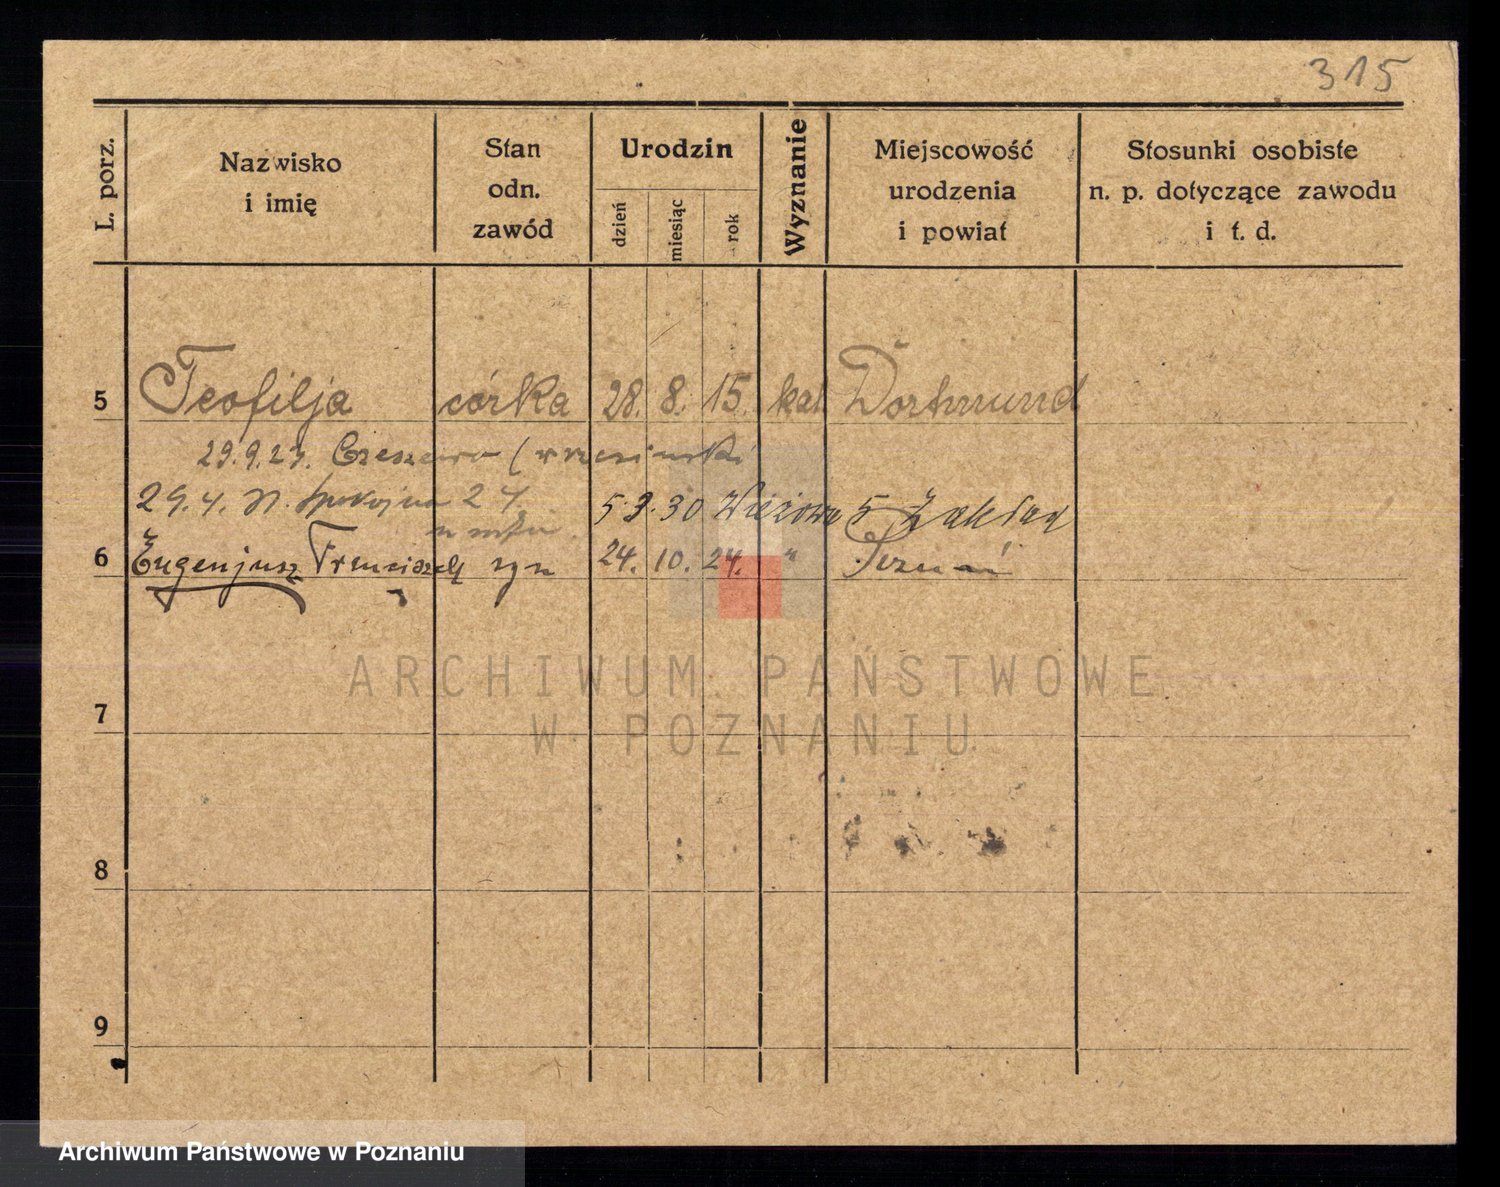 315
L. porz.
Nazwisko
i imię
Stan
odn.
zawód
Urodzin
dzień
miesiąc
rok
Wyznanie
Miejscowość
urodzenia
i powiat
Stosunki osobiste
n. p. dotyczące zawodu
i t. d.
5 Teofilja córka 28. 8. 15. kat. Dortmund
29.9.27. Czeszewo (wrzesiński
29.4. Spokojna 24 5.3.30 Wieżowa 5 Zakład
6 Eugenjusz Franciszek syn 24. 10. 24. " Poznań
7
8
9
ARCHIWUM PAŃSTWOWE
W POZNANIU
Archiwum Państwowe w Poznaniu